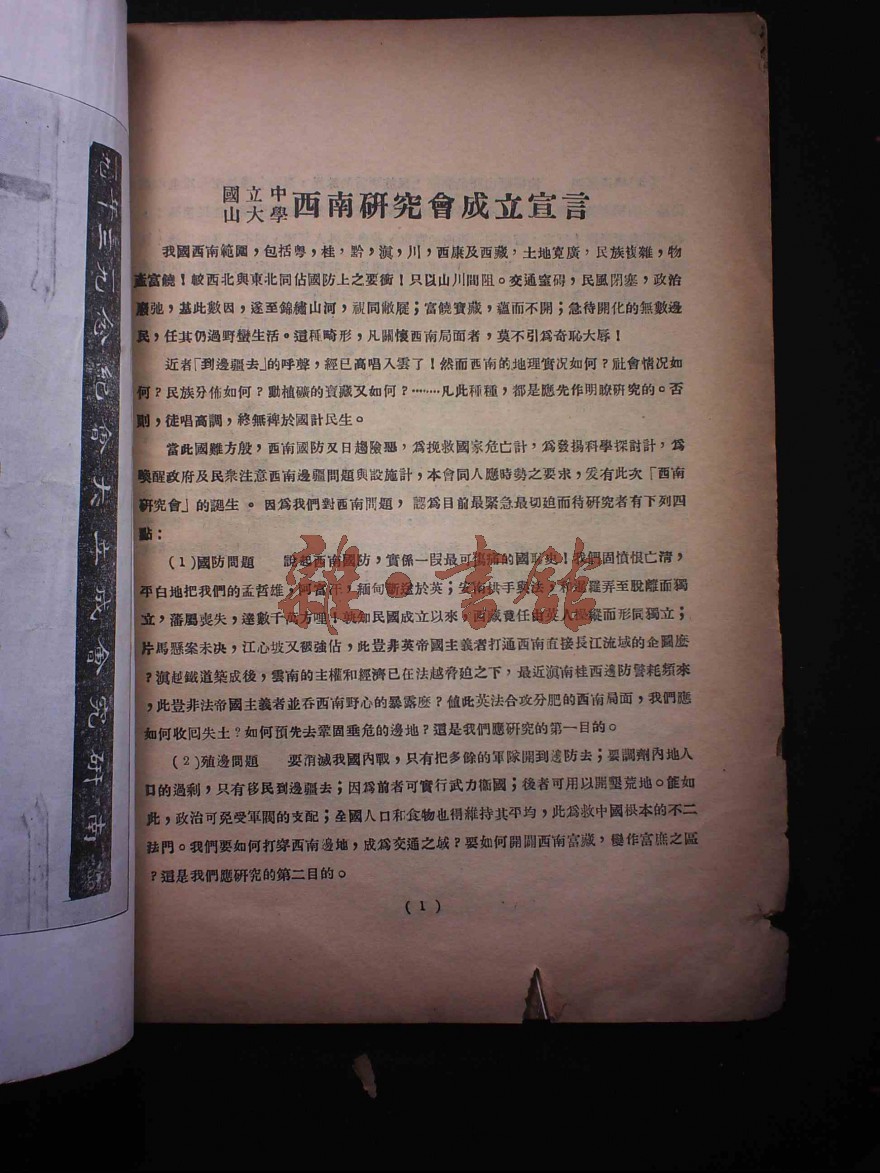 國立中山大學西南研究會成立宣言
我國西南範圍，包括粤，桂，黔，滇，川，西康及西藏，土地克廣，民族複雜，物
產富饒！較西北與東北同佔國防上之要衝！只以山川間阻。交通窒碍，民風閉塞，政治
廢弛，基此數因，遂至錦繡山河，視同敝屣；富饒寶藏，蘊而不開；急待開化的無數邊
民，任其仍過野蠻生活。這種畸形，凡關懷西南局面者，莫不引爲奇恥大辱！
近者「到邊疆去」的呼聲，經已高唱入雲了！然而西南的地理實况如何？社會情况如
何？民族分佈如何？動植礦的寶藏又如何？………凡此種種，都是應先作明瞭研究的。否
則，徒唱高調，終無裨於國計民生。
當此國難方殷，西南國防又日趨險惡，爲挽救國家危亡計，爲發揚科學探討計，爲
喚醒政府及民衆注意西南邊疆問題與設施計，本會同人應時勢之要求，爰有此次「西南
研究會」的誕生。因爲我們對西南問題，認爲目前最緊急最切迫而待研究者有下列四
點：
(1)國防問題　說起西南國防，實係一段最可痛的國恥史！我們固憤恨亡清，
平白地把我們的孟哲雄，阿富汗，緬甸斷送於英；安南拱手與法，和暹羅弄至脫離而獨
立，藩屬喪失，達數千萬方哩！孰知民國成立以來，西藏竟任由英人操縱而形同獨立；
片馬懸案未决，江心坡又被強佔，此豈非英帝國主義者打通西南直接長江流域的企圖麼
？滇越鐵道築成後，雲南的主權和經濟已在法越脅迫之下，最近滇南桂西邊防警耗頻來
，此豈非法帝國主義者並吞西南野心的暴露麼？値此英法合攻分肥的西南局面，我們應
如何收回失土？如何預先去鞏固垂危的邊地？這是我們應研究的第一目的。
(2)殖邊問題　要消滅我國內戰，只有把多餘的軍隊開到邊防去；要調劑內地人
口的過剩，只有移民到邊疆去；因爲前者可實行武力衞國；後者可用以開墾荒地。能如
此，政治可免受軍閥的支配；全國人口和食物也得維持其平均，此爲救中國根本的不二
法門。我們要如何打穿西南邊地，成爲交通之域？要如何開闢西南富藏，變作富庶之區
？這是我們應研究的第二目的。
(1)
雜·書館
念
廿三元念紀會大立成會究研南